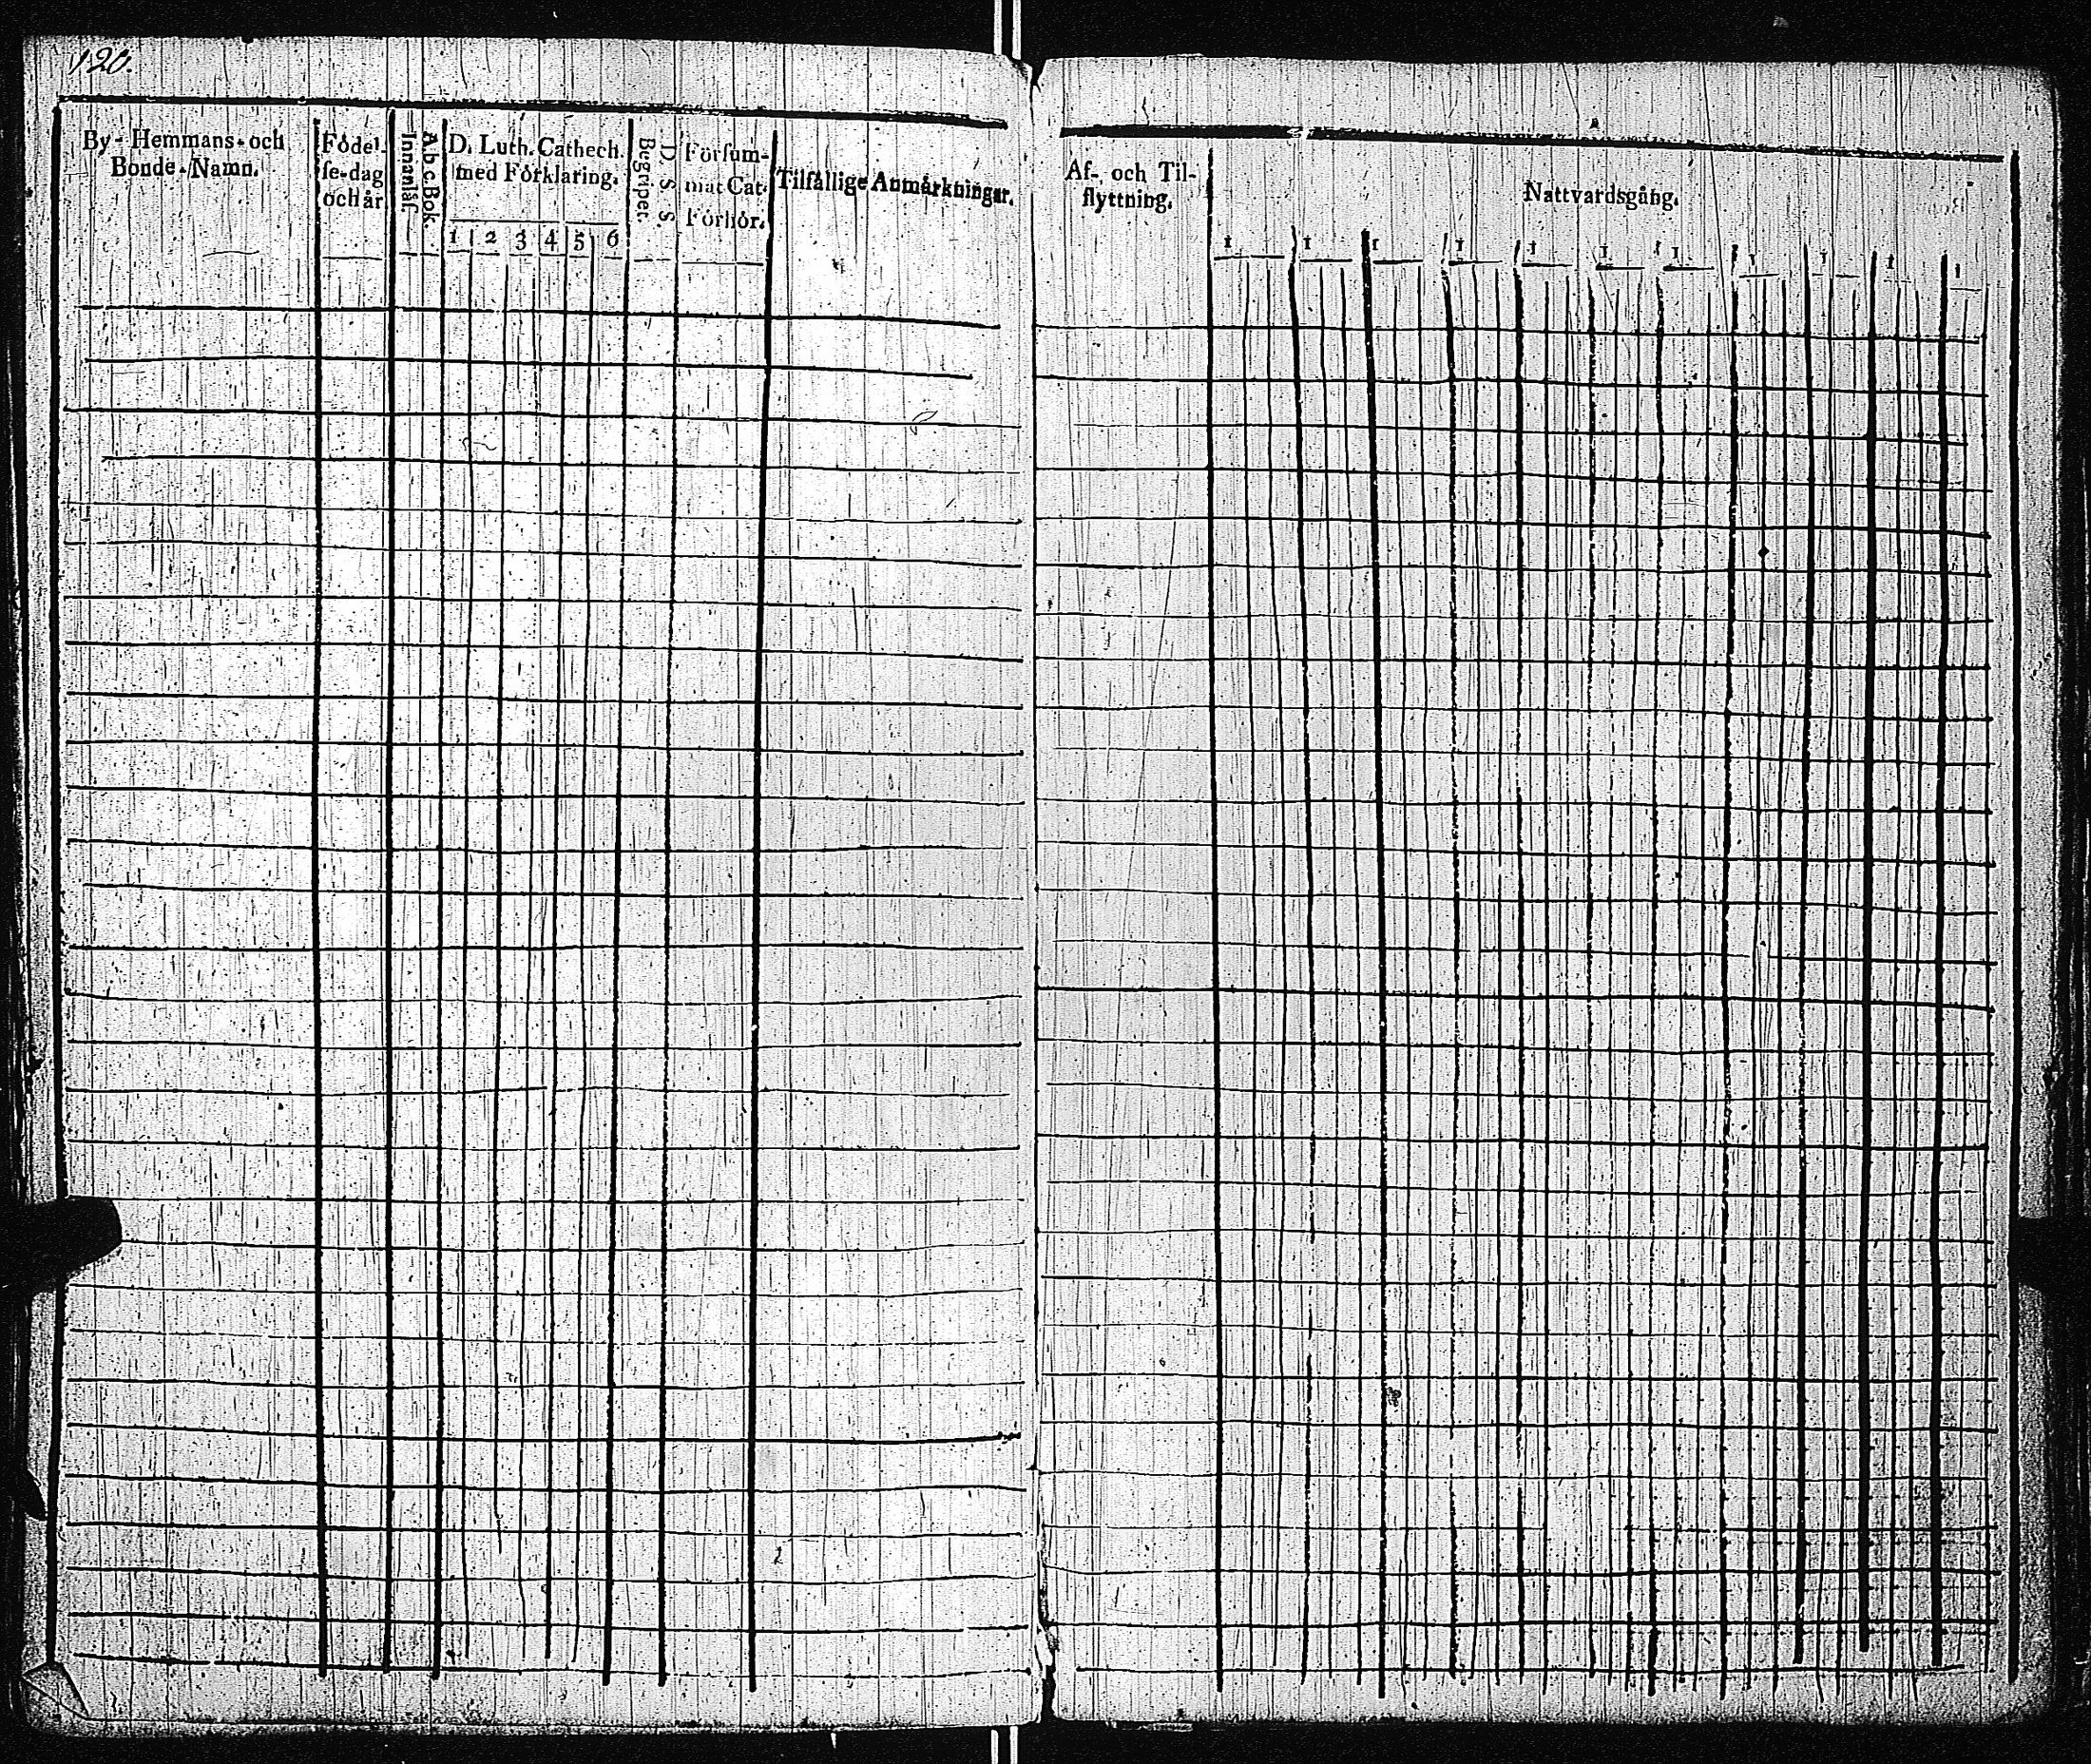 120.
By- Hemmans- och
Bonde-Namn.
Födel-
se-dag
och år
Innanläs.
A.b.c.Bok.
D. Luth. Cathech.
med Förklaring.
1 2 3 4 5 6
Begripet.
D. S. S.
Försum-
mat Cat.
Förhör.
Tilfällige Anmärkningar.
Af- och Til-
flyttning.
Nattvardsgång.
1 1 1 1 1 1 1 1 1 1 1